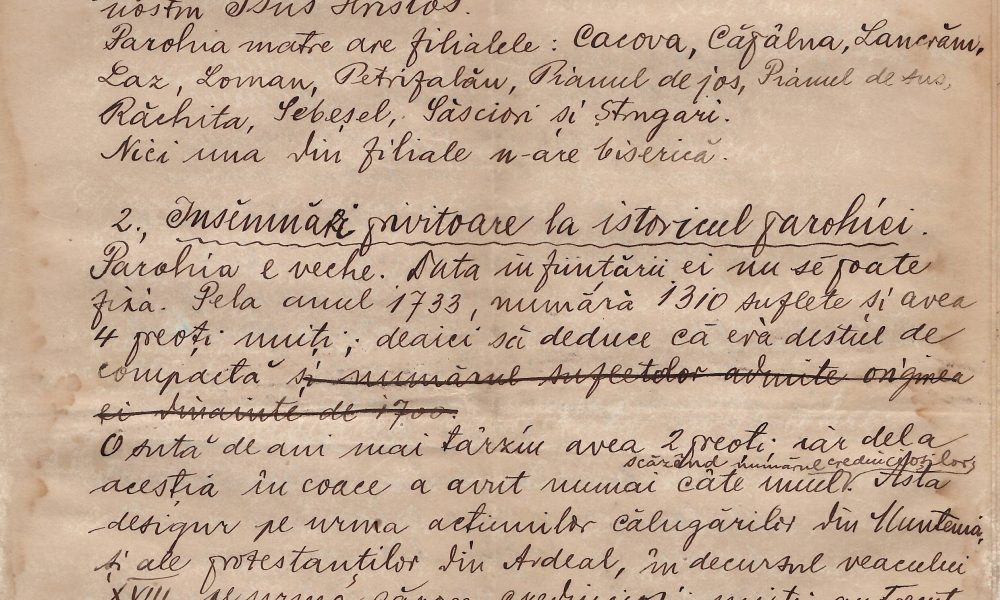 nostru Isus Hristos.
Parohia matre are filialele: Cacova, Căpâlna, Lancrăm,
Laz, Loman, Petrifalău, Pianul de jos, Pianul de sus,
Răchita, Sebeșel, Săsciori și Strugari.
Nici una din filiale n-are biserică.
2., Însemnări privitoare la istoricul parohiei.
Parohia e veche. Data înființării ei nu se poate
fixa. Pela anul 1733, numără 1310 suflete și avea
4 preoți uniți; deaici să deduce că era destul de
compactă și numărul sufletelor admite originea
ei dinainte de 1700.
O sută de ani mai târziu avea 2 preoți iar dela
scăzând numărul credincioșilor
aceștia în coace a avut numai câte unul. Asta
desigur pe urma acțiunilor călugărilor din Muntenia,
și ale protestanților din Ardeal, în decursul veacului
XVIII, pe urma căror credincioși uniți au